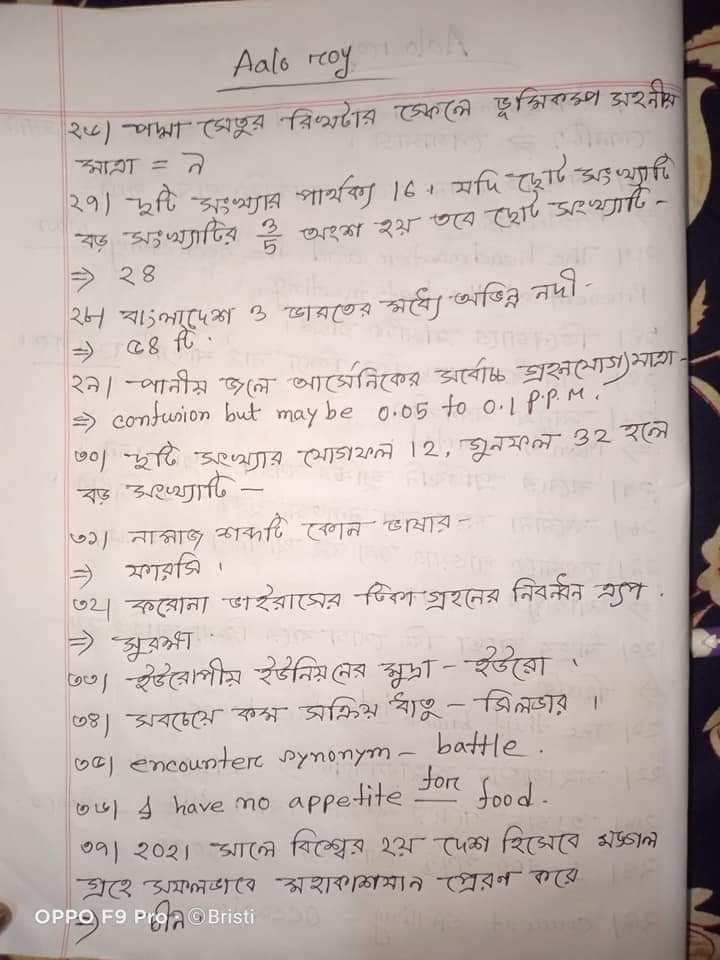 Aalo roy
২৬| পদ্মা সেতুর রিখটার স্কেলে ভূমিকম্প সহনীয়
মাত্রা = ৯
২৭| দুটি সংখ্যার পার্থক্য 16। যদি ছোট সংখ্যাটি
বড় সংখ্যাটির 3/5 অংশ হয় তবে ছোট সংখ্যাটি-
⇒ ২৪
২৮| বাংলাদেশ ও ভারতের মধ্যে অভিন্ন নদী-
⇒ ৫৪ টি.
২৯| পানীয় জলে আর্সেনিকের সর্বোচ্চ গ্রহনযোগ্য মাত্রা-
⇒ confusion but may be 0.05 to 0.1 P.P.M.
৩০| দুটি সংখ্যার যোগফল 12, গুনফল 32 হলে
বড় সংখ্যাটি —
৩১| নামাজ শব্দটি কোন ভাষার-
⇒ ফারসি।
৩২| করোনা ভাইরাসের টিকা গ্রহনের নিবন্ধন এ্যাপ.
⇒ সুরক্ষা.
৩৩| ইউরোপীয় ইউনিয়নের মুদ্রা – ইউরো।
৩৪| সবচেয়ে কম সক্রিয় ধাতু – সিলভার।
৩৫| encounter synonym – battle.
৩৬| I have no appetite for food.
৩৭| ২০২১ সালে বিশ্বের ২য় দেশ হিসেবে মঙ্গল
গ্রহে সফলভাবে মহাকাশযান প্রেরণ করে
⇒ চীন
OPPO F9 Pro · ©Bristi